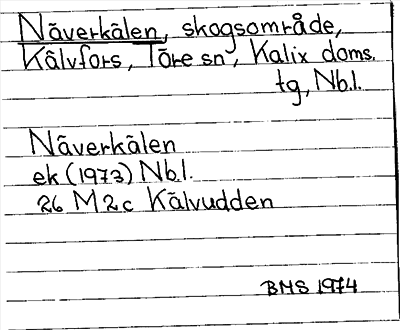 Näverkälen, skogsområde,
Kälvfors, Töre sn, Kalix doms.
tg, Nb.l.
Näverkälen
ek (1973) Nb.l.
26 M 2c Kälvudden
BMS 1974